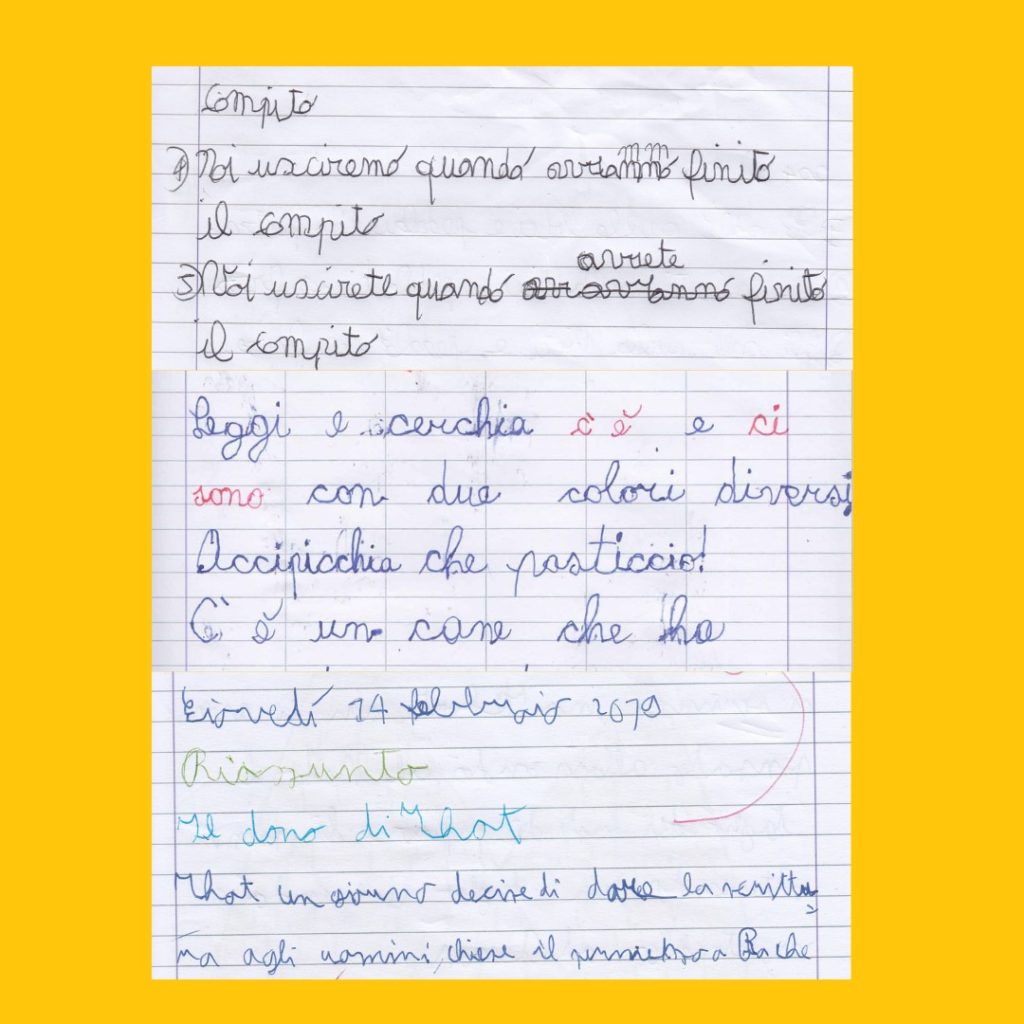 Compito
4) Noi usciremo quando avranno finito
il compito
5) Noi uscirete quando avrete finito
il compito
Leggi e cerchia c'è e ci
sono con due colori diversi
Accipicchia che pasticcio!
C'è un cane che ha
Giovedí 14 febbraio 2019
Riassunto
Il dono di Thot
Thot un giorno decise di dare la scrittu
ra agli uomini, chiese il permesso a Ra che